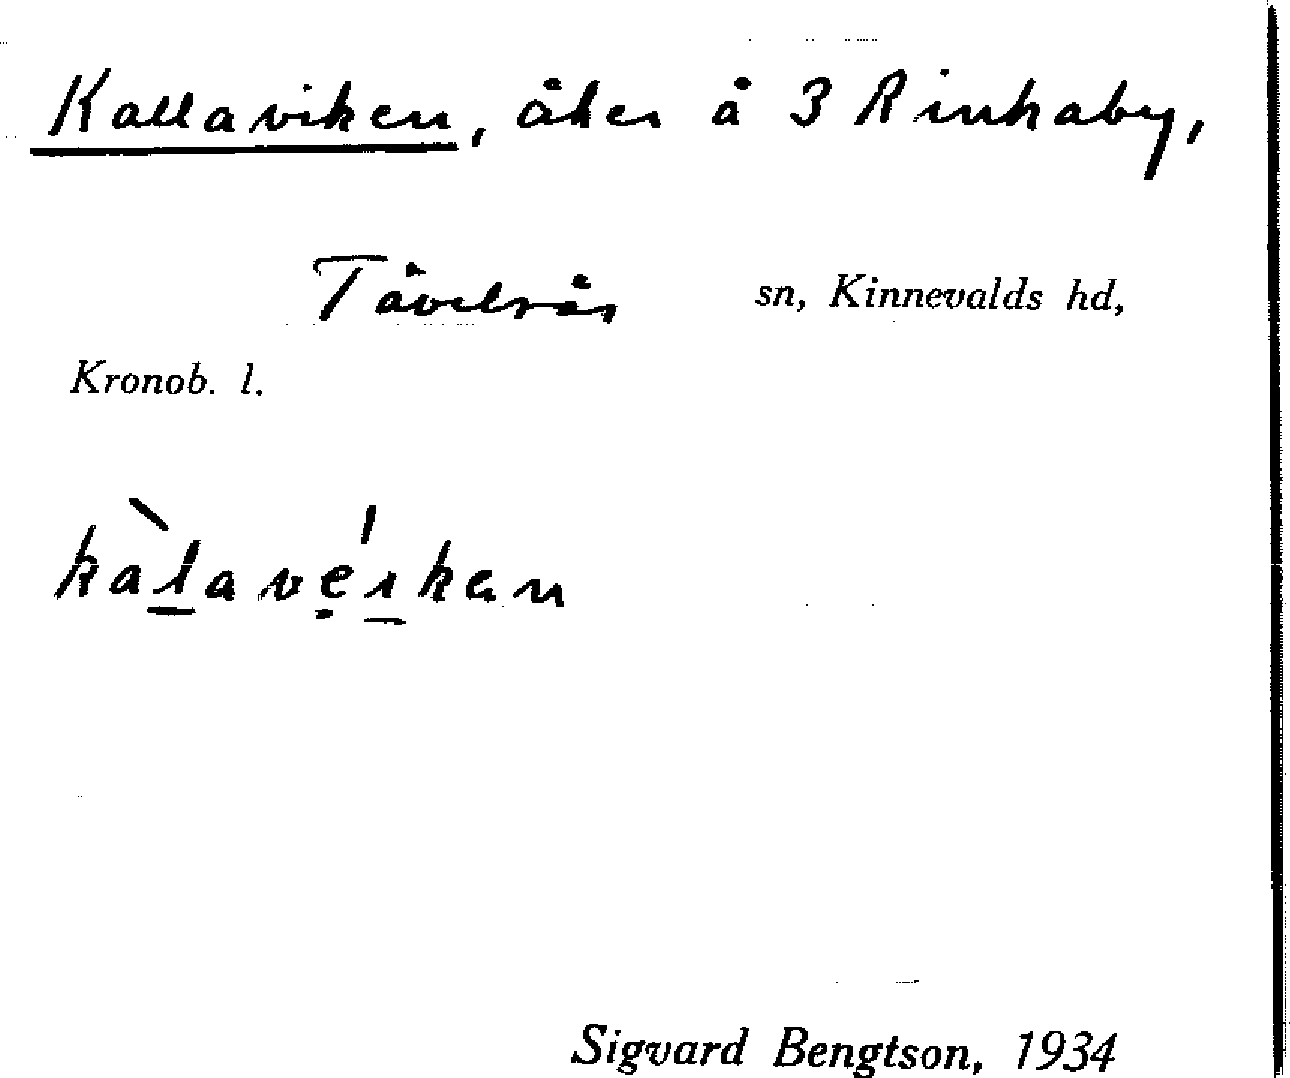 Kallaviken, åker å 3 Rinkaby,
Tävelsås sn, Kinnevalds hd,
Kronob. l.
kàl̲avẹ́ı̲kan
Sigvard Bengtson, 1934